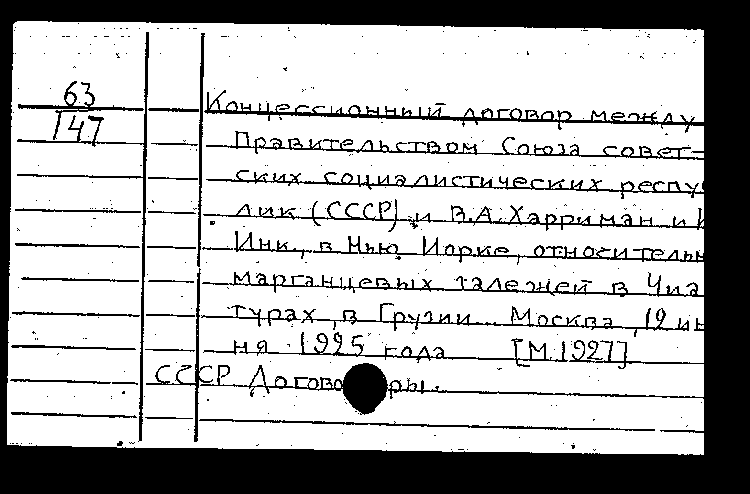 63
147
Концессионный договор между
Правительством Союза совет-
ских социалистических респу
лик (СССР) и В.А. Харриман и К
Инк., в Нью Иорке, относительн
марганцевых залежей в Чиа
турах, в Грузии. Москва, 12 ию
ня 1925 года [М. 1927]
СССР Договоры.